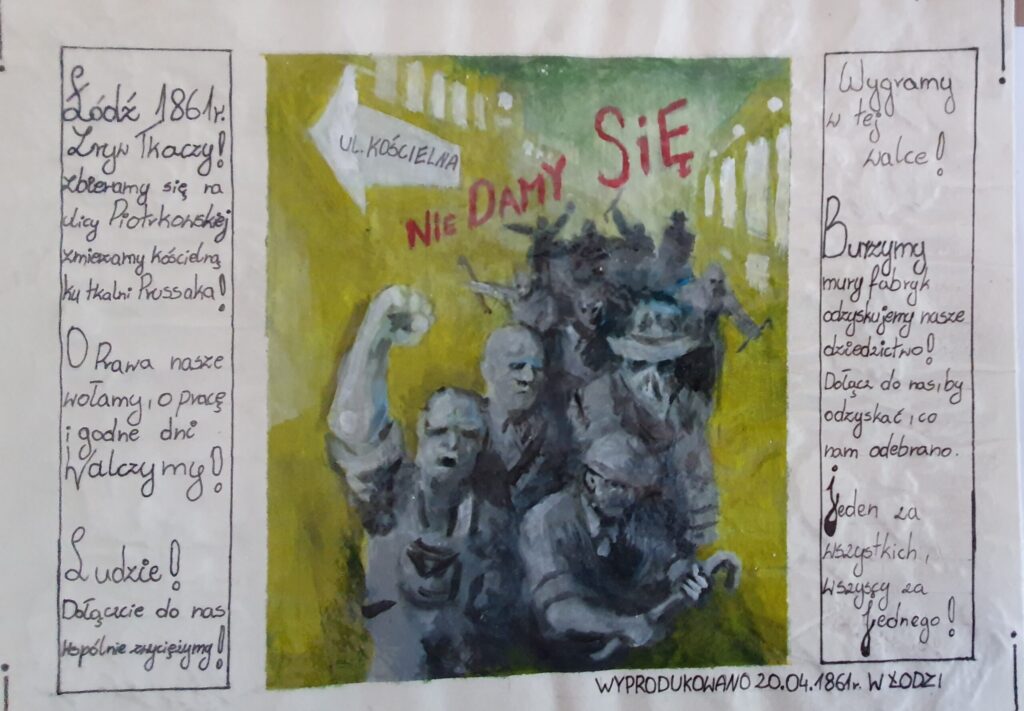 Łódź 1861r.
Zryw Tkaczy!
zbieramy się na
ulicy Piotrkowskiej
zmierzamy kościelną
ku tkalni Prussaka!
O Prawa nasze
wołamy, o pracę
i godne dni
Walczymy!
Ludzie!
Dołączcie do nas
wspólnie zwyciężymy!
UL. KOŚCIELNA
NIE DAMY SIĘ
Wygramy
w tej
walce!
Burzymy
mury fabryk
odzyskujemy nasze
dziedzictwo!
Dołącz do nas, by
odzyskać, co
nam odebrano.
Jeden za
wszystkich,
wszyscy za
Jednego!
WYPRODUKOWANO 20.04.1861r. W ŁODZI